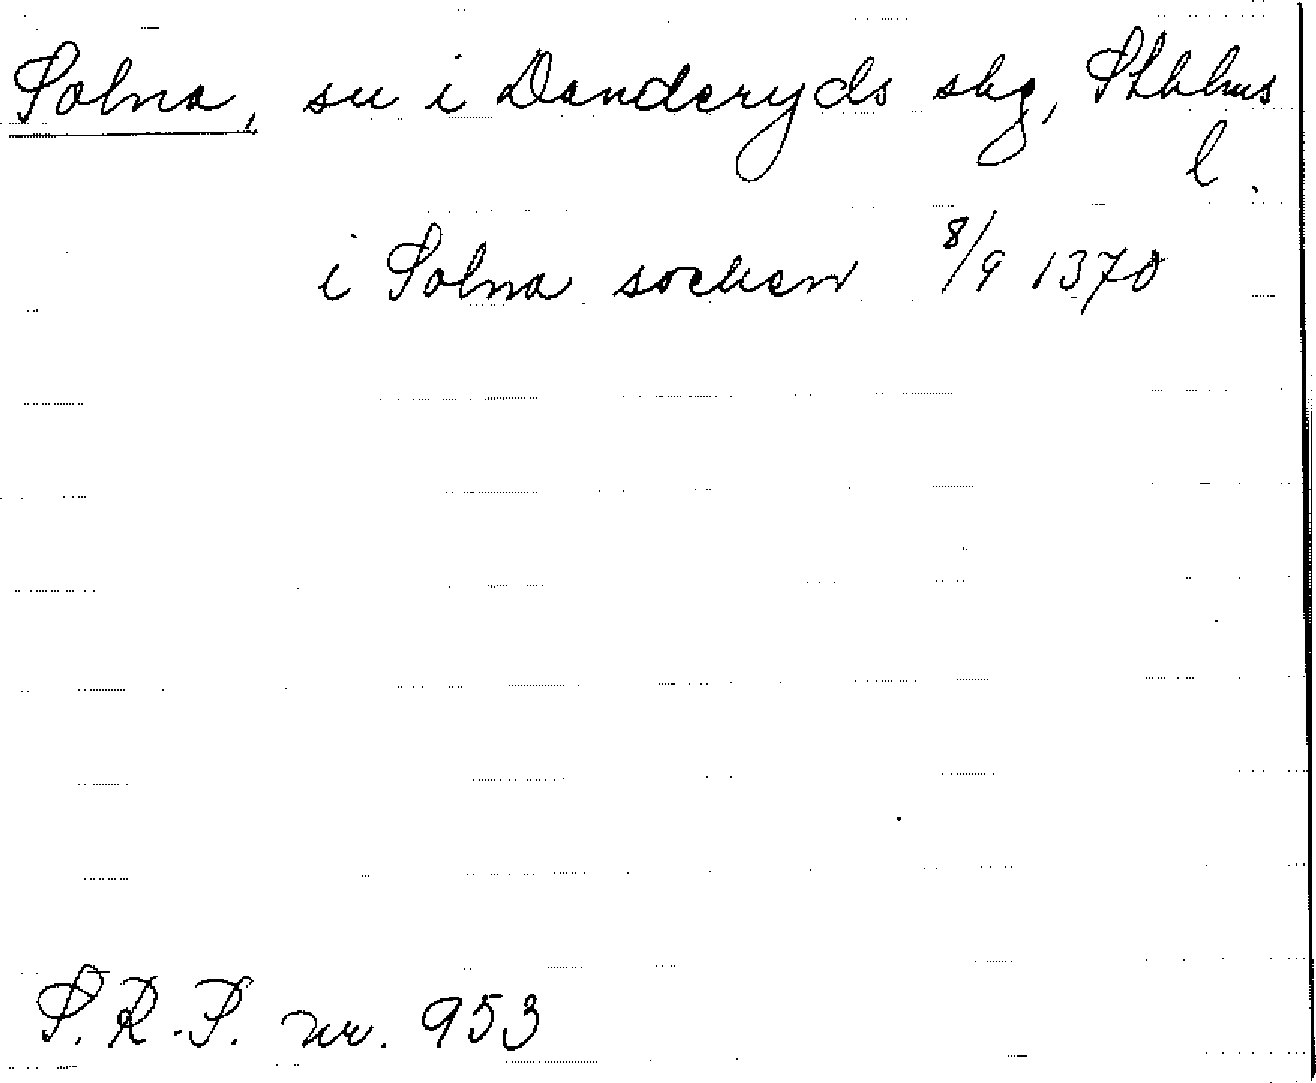 Solna, sn i Danderyds skg, Sthlms
l.
i Solna socken 8/9 1370
S.R.P. nr. 953